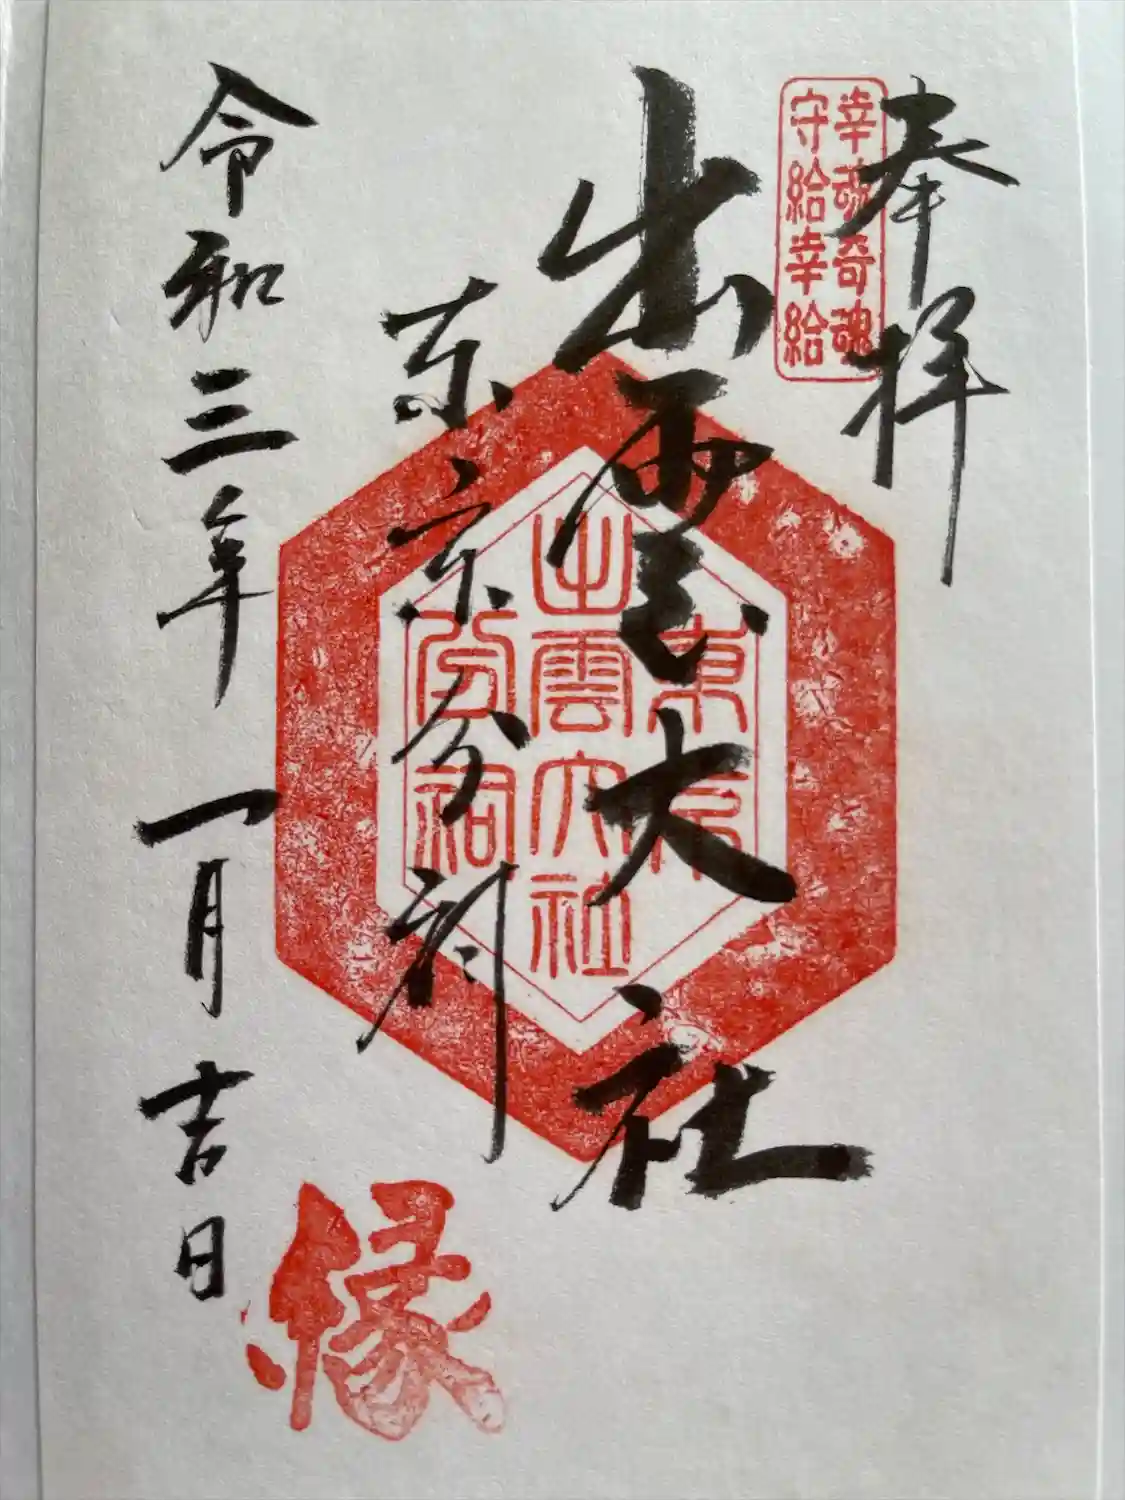 奉拝
幸魂奇魂
守給幸給
出雲大社
東京分祠
東京
出雲大社
分祠
令和三年一月吉日
縁